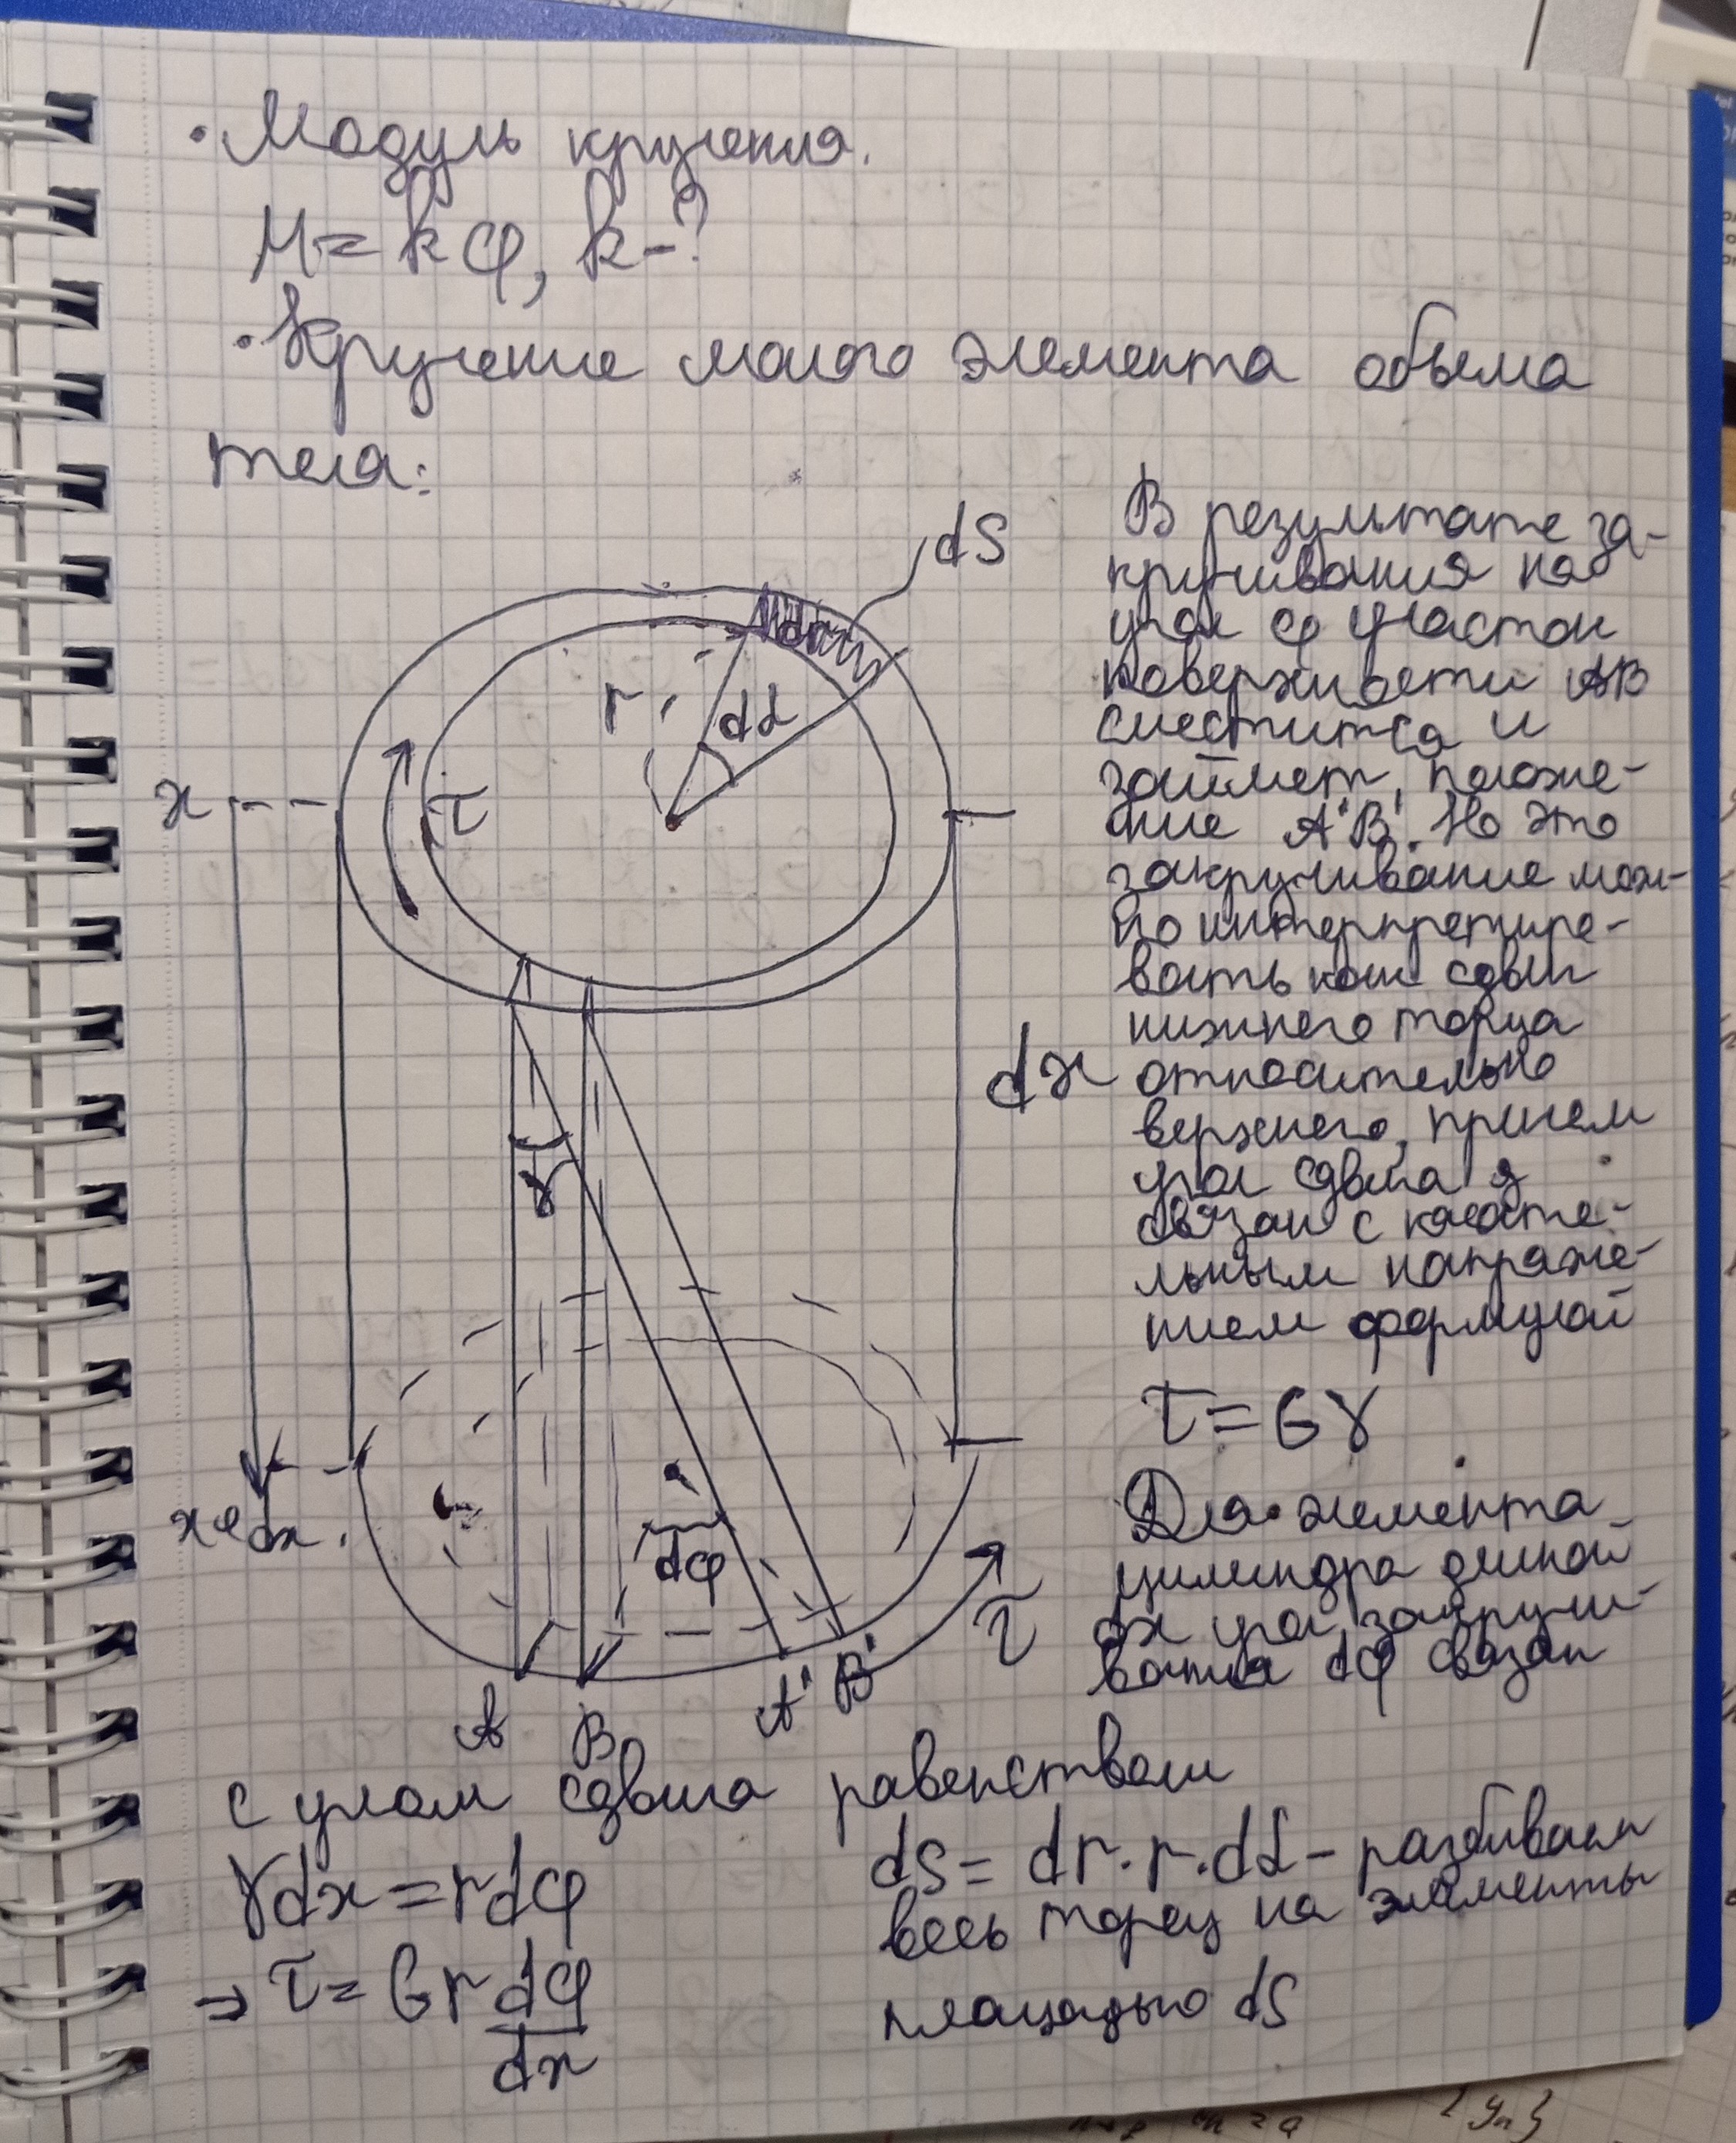 • Модуль кручения.
M = kφ, k - ?
• Кручение малого элемента объема
тела:
dS
dr
r
dα
x
τ
dx
γ
dφ
x+dx
τ
A B A' B'
В результате за-
кручивания на
угол φ участок
поверхности AB
сместится и
займет положе-
ние A'B'. Но это
закручивание мож-
но интерпретиро-
вать как сдвиг
нижнего торца
относительно
верхнего, причем
угол сдвига γ
связан с касате-
льным напряже-
нием формулой
τ = Gγ
Для элемента
цилиндра длиной
dx угол закручи-
вания dφ связан
с углом сдвига равенством
γdx = rdφ
⇒ τ = Gr dφ/dx
dS = dr·r·dα - разбиваем
весь торец на элементы
площадью dS
{yₙ}